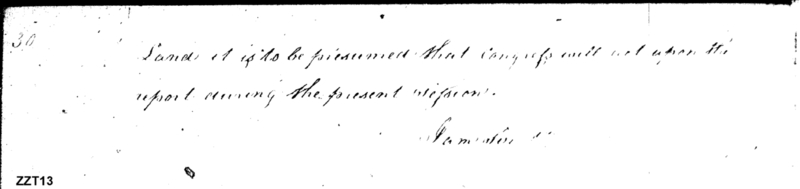 30
Lands it is to be presumed that Congress will act upon the
report during the present session.
I am Sir
ZZT13